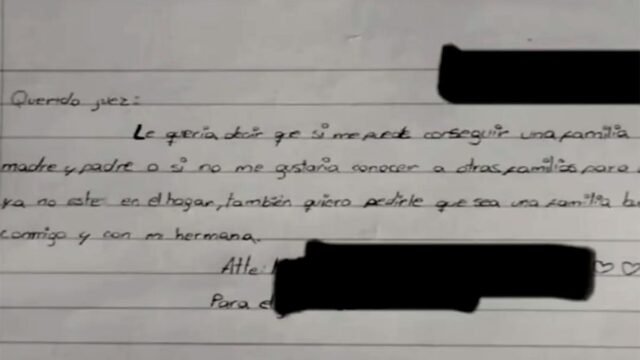 Querido juez:
Le queria decir que si me puede conseguir una familia
madre y padre o si no me gustaria conocer a otras familias para
ya no este en el hogar, también quiero pedirle que sea una familia
conmigo y con mi hermana.
Atte:
Para